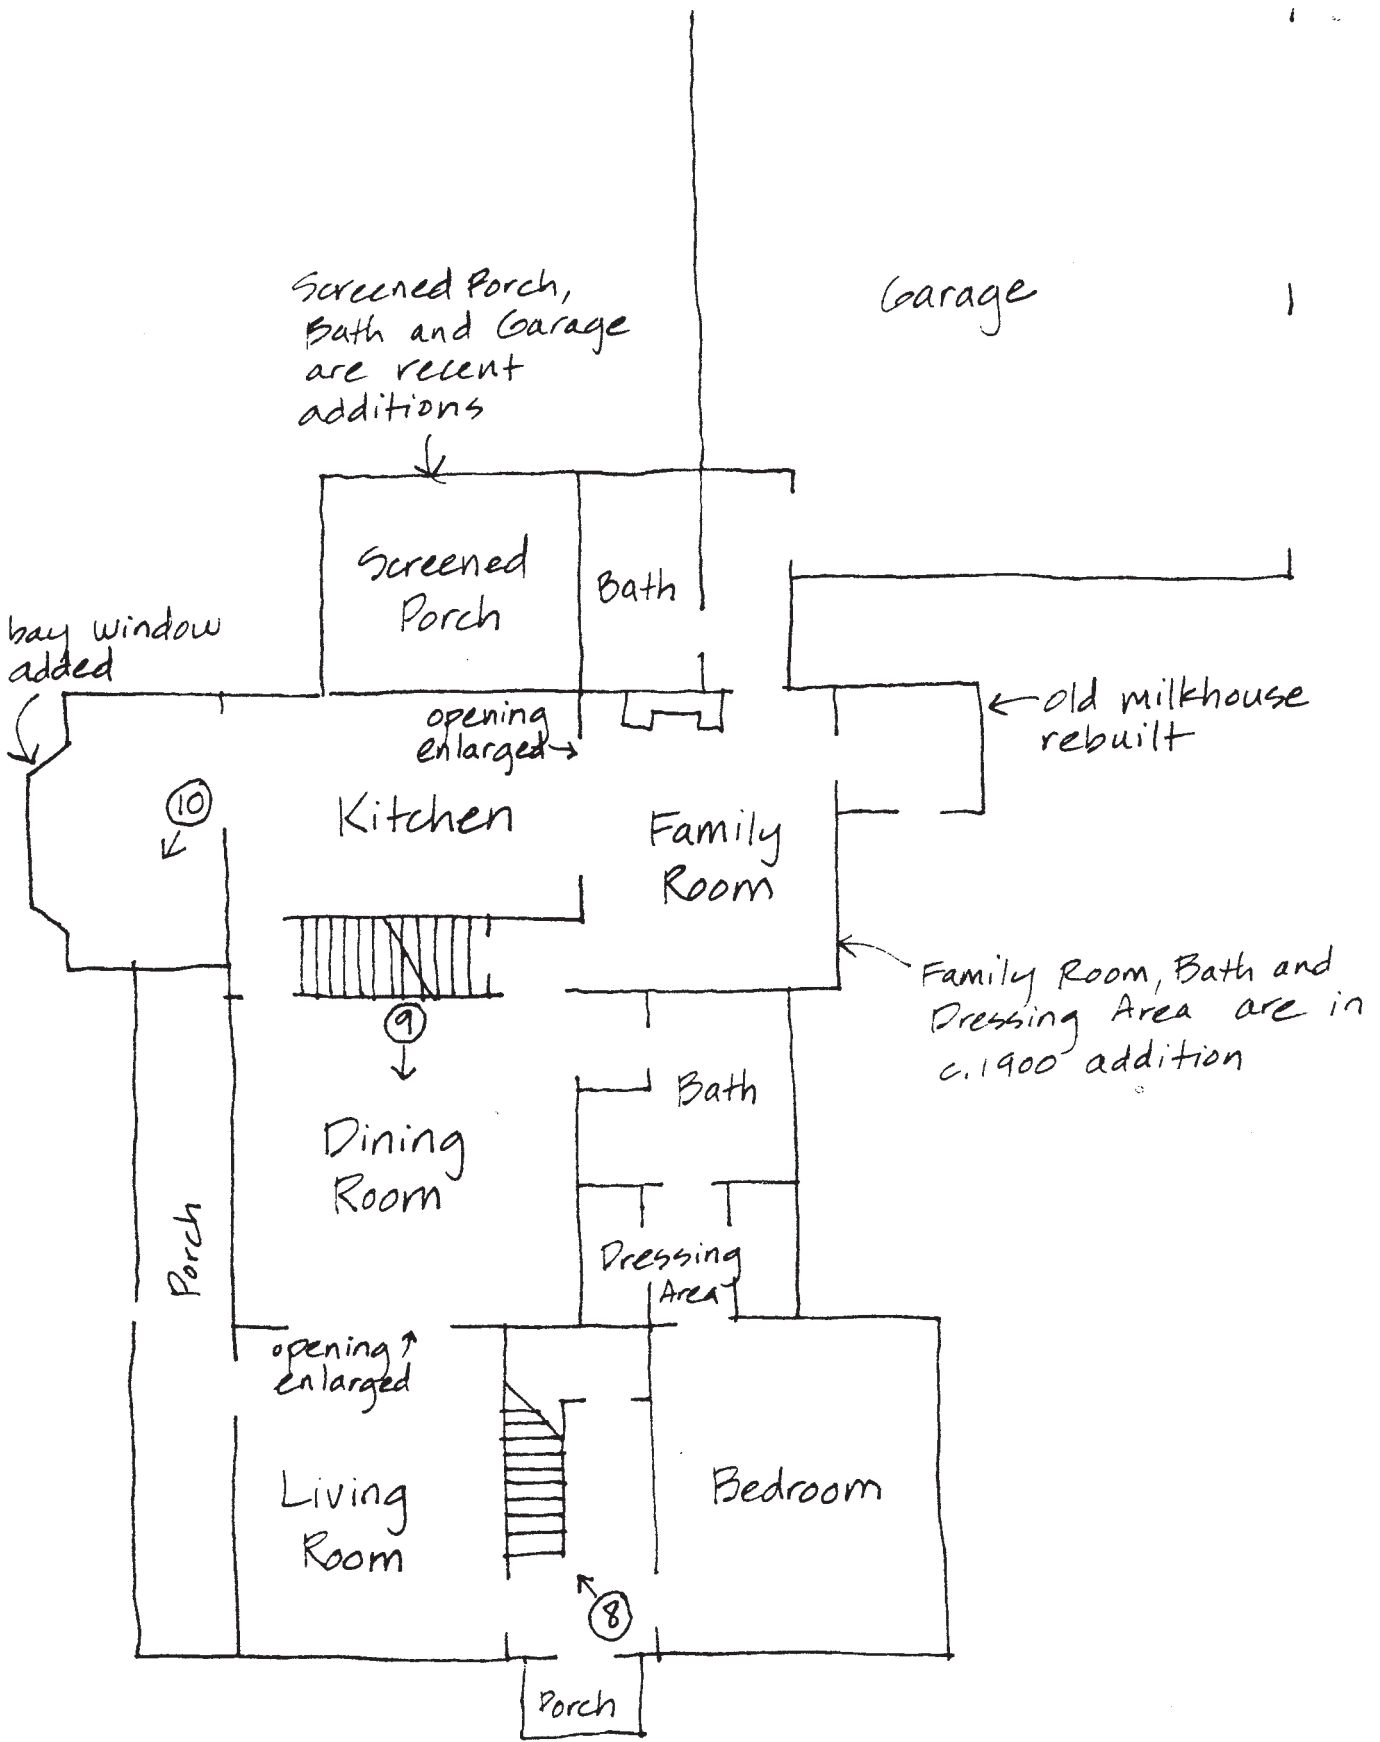 Garage
Screened Porch,
Bath and Garage
are recent
additions
Screened
Porch
Bath
bay window
added
old milkhouse
rebuilt
opening
enlarged
10
Kitchen
Family
Room
Family Room, Bath and
Dressing Area are in
c.1900 addition
9
Bath
Dining
Room
Porch
Dressing
Area
opening
enlarged
Living
Room
Bedroom
8
Porch